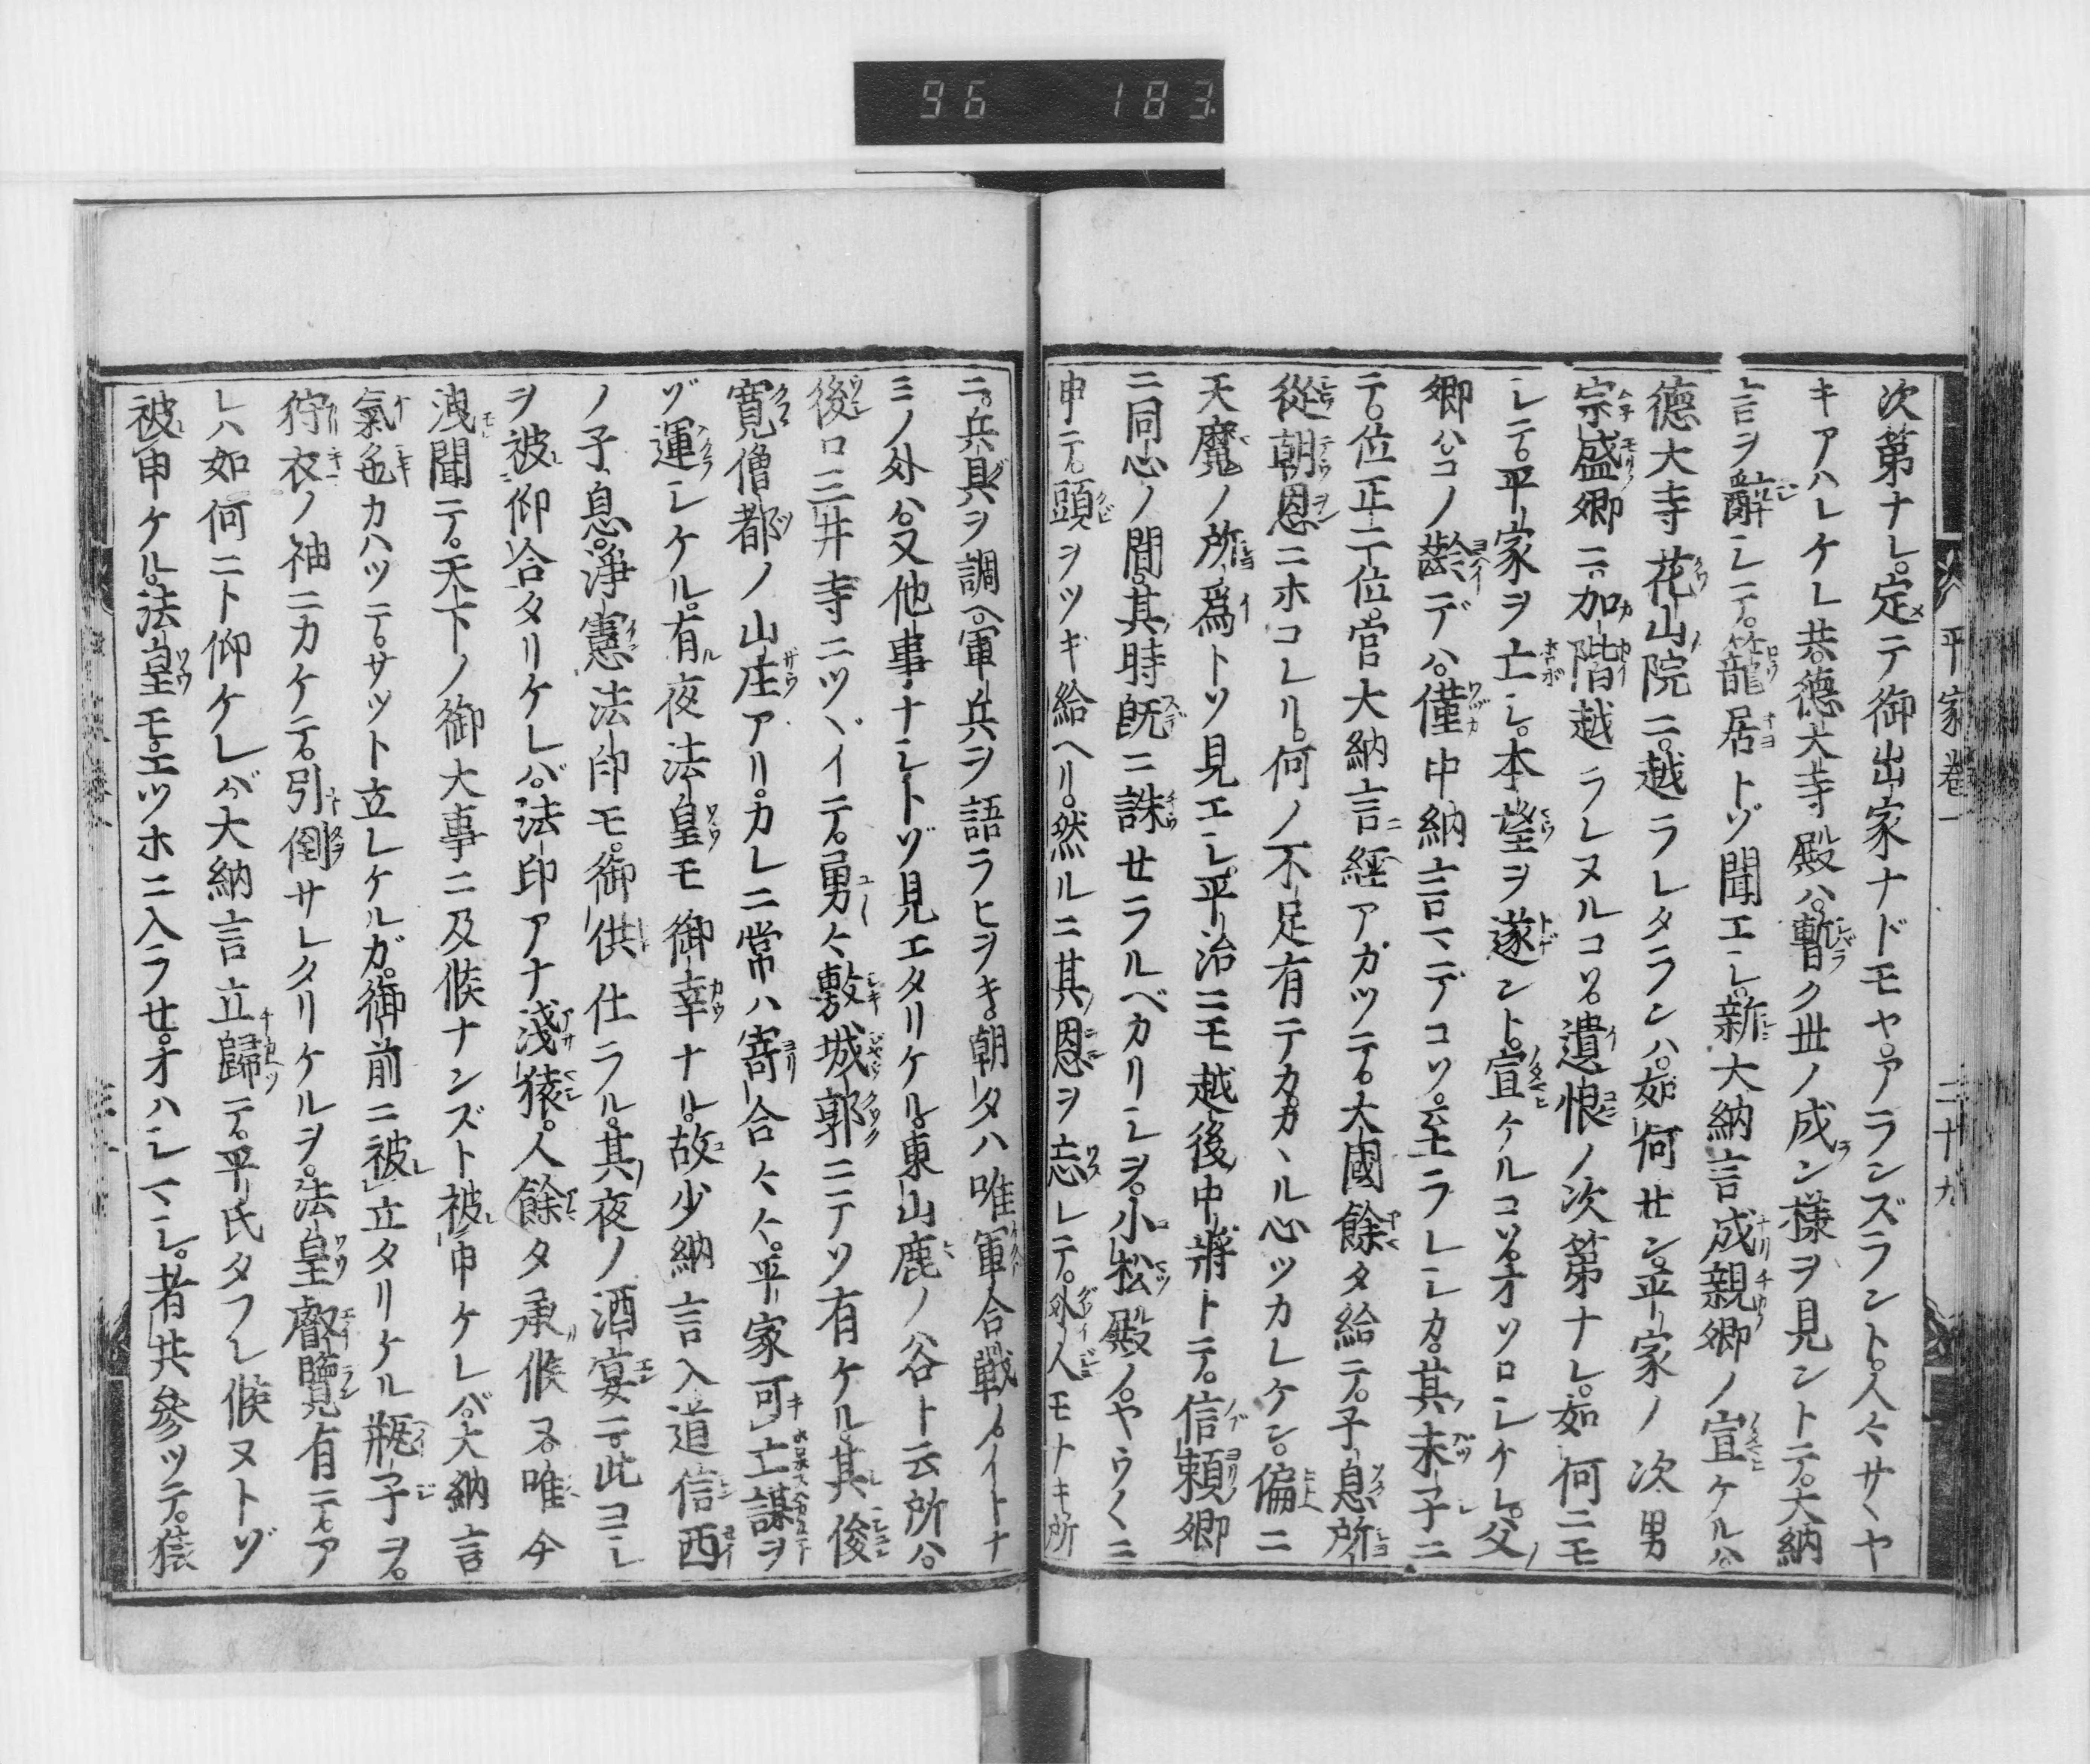 96 183
平家巻一 二十九
次第ナレ。定テ御出家ナドモヤ。アラシズラント。人々サヽヤ
キアハレケレ共。德大寺殿ハ。暫ク世ノ成ン樣ヲ見ントテ。大納
言ヲ辭シテ。籠居トゾ聞エシ。新大納言成親卿ノ宣ケルハ。
德大寺花山院ニ。越ラレタランハ。如何セン。平家ノ次男
宗盛卿ニ。加階越ラレヌルコソ。遺恨ノ次第ナレ。如何ニモ
シテ。平家ヲ亡シ。本望ヲ遂ント。宣ケルコソ。オソロシケレ。父
卿ハコノ齡デハ。僅中納言マデコソ。至ラレシカ。其末子ニ
テ。位正二位。官大納言ニ經アガツテ。大國餘タ給テ。子息所
從朝恩ニホコレリ。何ノ不足有テカ。カヽル心ツカレケン。偏ニ
天魔ノ所爲トソ見エシ。平治ニモ越後中將トテ。信頼卿
ニ同心ノ間。其時既ニ誅セラルベカリシヲ。小松殿ノ。ヤウ〱ニ
申テ。頭ヲツギ給ヘリ。然ルニ其恩ヲ忘レテ。外人モナキ所
ニ。兵具ヲ調ヘ。軍兵ヲ語ラヒヲキ。朝タハ唯軍合戰ノ。イトナ
ミノ外ハ。又他事ナシトゾ見エタリケル。東山鹿ノ谷ト云所ハ。
後ロ三井寺ニツヾイテ。勇々敷城郭ニテソ有ケル。其俊
寛僧都ノ山庄アリ。カレニ常ハ寄合々々。平家可亡謀ヲ
ゾ運シケル。有夜法皇モ御幸ナル。故少納言入道信西
ノ子息。淨憲法印モ。御供仕ラル。其夜ノ酒宴ニ。此ヨシ
ヲ被仰合タリケレバ。法印アナ淺猿。人餘タ承候ヌ。唯今
洩聞ニテ。天下ノ御大事ニ及候ナンズト被申ケレバ。大納言
氣色カハツテ。サツト立レケルガ。御前ニ被立タリケル瓶子ヲ。
狩衣ノ袖ニカケテ。引倒サレタリケルヲ。法皇叡覽有テ。ア
レハ如何ニト仰ケレバ。大納言立歸テ。平氏タフレ候ヌトゾ
被申ケル。法皇モ。エツホニ入ラセ。オハシマシ。者共參ツテ。猿